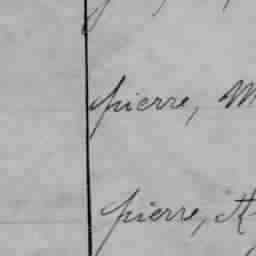 pierre, M
pierre, A